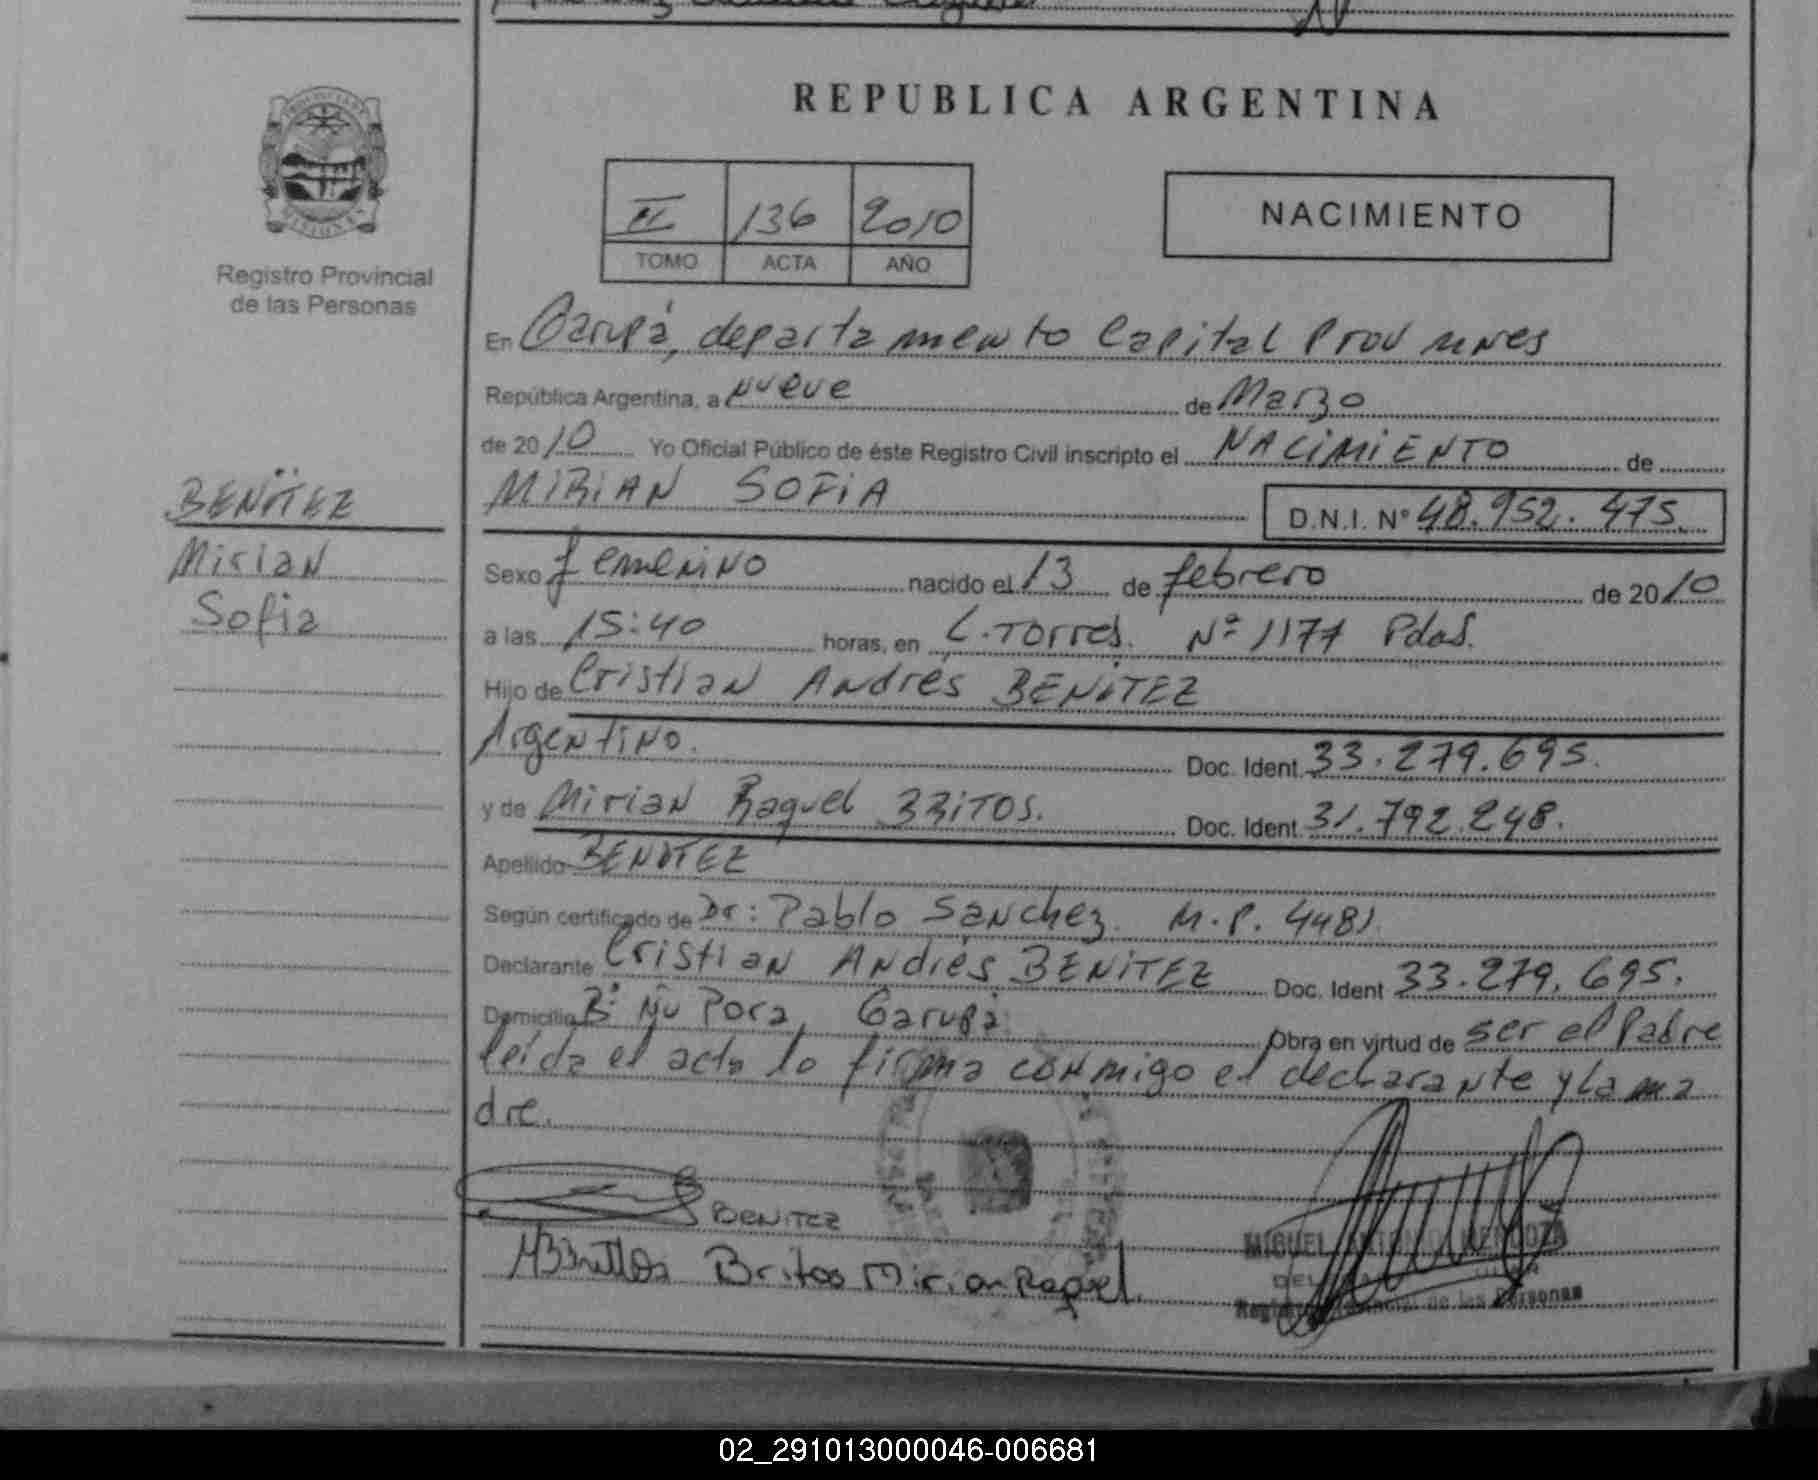 REPUBLICA ARGENTINA
II 136 2010
TOMO ACTA AÑO
NACIMIENTO
Registro Provincial
de las Personas
En Garupá, departamento Capital Prov mnes
República Argentina, a nueve de Marzo
de 2010 Yo Oficial Público de éste Registro Civil inscripto el NACIMIENTO de
MIRIAN SOFIA D.N.I. Nº 48.952.475.
BENITEZ
Mirian
Sofia
Sexo femenino nacido el 13 de febrero de 2010
a las 15:40 horas, en L. Torres. Nº 1177 Pdas.
Hijo de Cristian Andrés BENITEZ
Argentino. Doc. Ident. 33.279.695.
y de Mirian Raquel BRITOS. Doc. Ident. 31.792.248.
Apellido BENITEZ
Según certificado de Dr: Pablo Sanchez. M.P. 4481
Declarante Cristian Andrés BENITEZ Doc. Ident 33.279.695.
Domicilio Bº Ñu Pora, Garupá Obra en virtud de ser el Padre
leída el acta lo firma conmigo el declarante y la ma
dre.
BENITEZ
Britos Mirian Raquel.
MIGUEL ANTONIO MENDOZA
Registro Provincial de las Personas
02_291013000046-006681